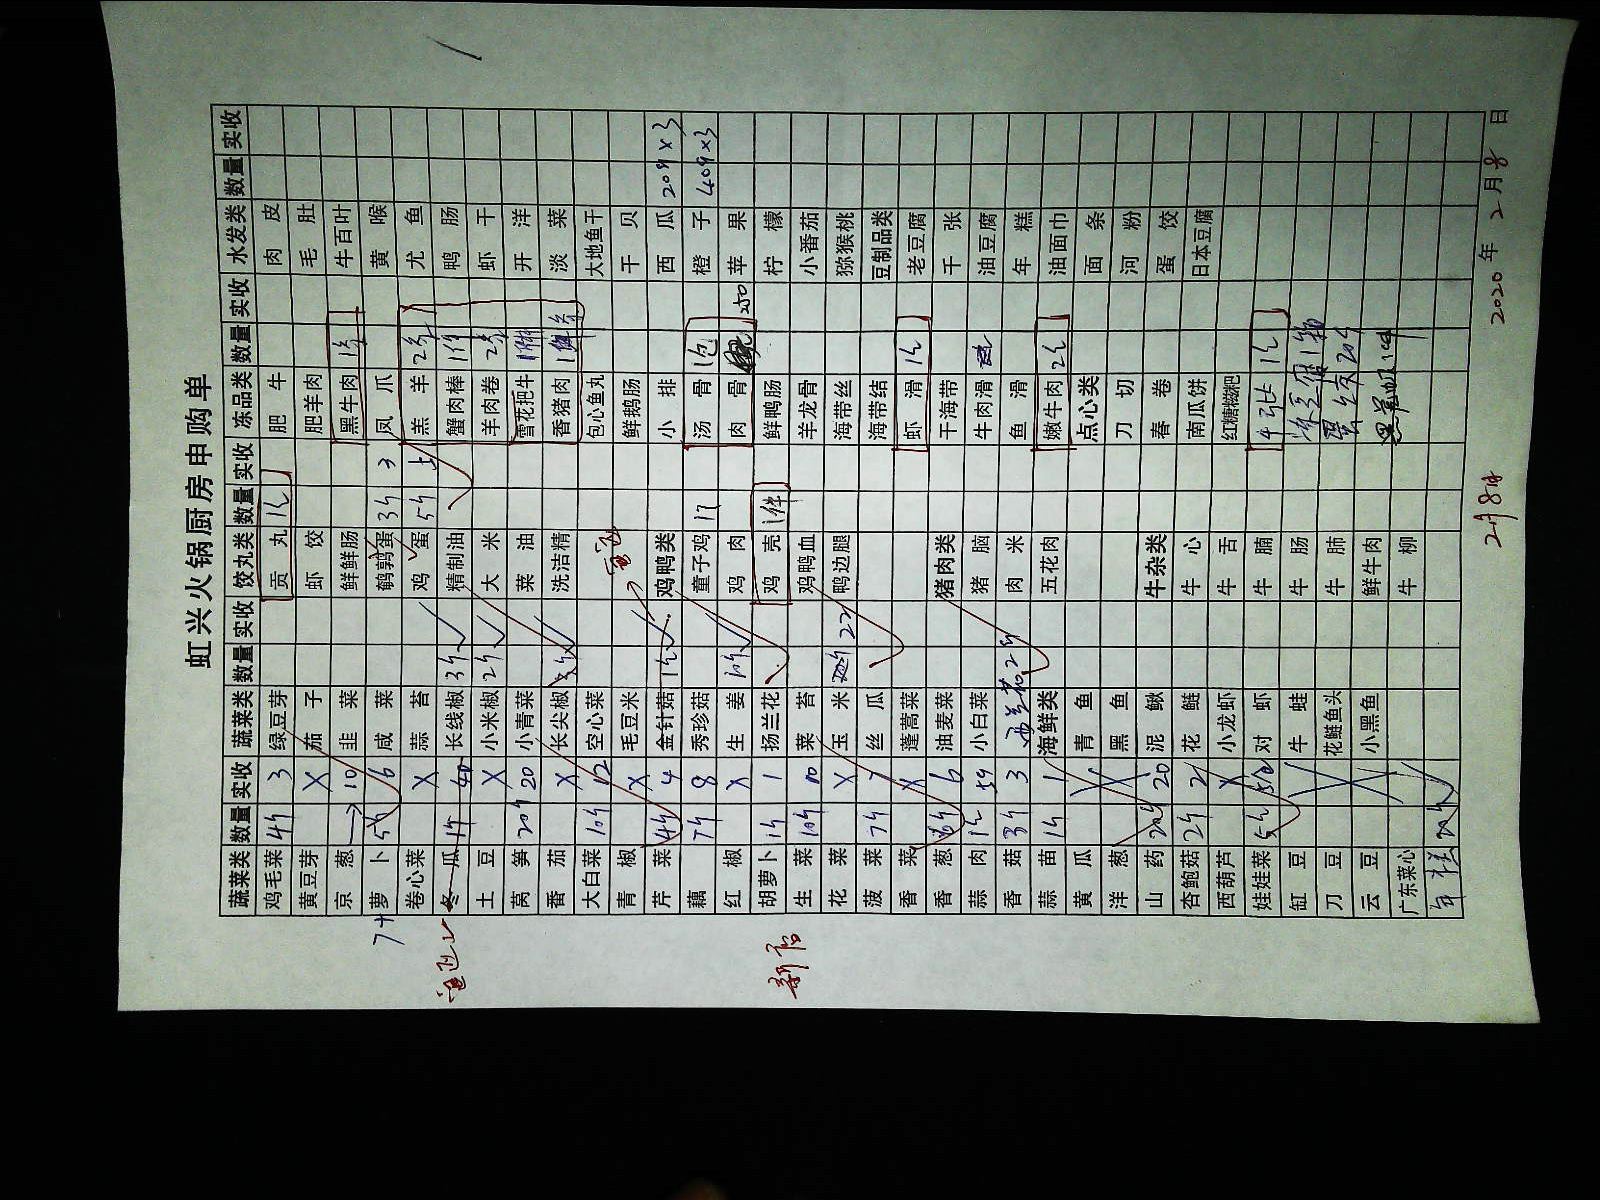 虹兴火锅厨房申购单
蔬菜类 数量 实收 蔬菜类 数量 实收 饺丸类 数量 实收 冻品类 数量 实收 水发类 数量 实收
鸡毛菜 4斤 3 绿豆芽 贡丸 1包 肥牛 肉皮
黄豆芽 X 茄子 虾饺 肥羊肉 毛肚
京葱 10 韭菜 鲜鲜肠 黑牛肉 牛百叶
7斤 萝卜 5斤 6 咸菜 鹌鹑蛋 3斤 3 凤爪 黄喉
卷心菜 X 蒜苔 鸡蛋 5斤 5 羔羊 2条 尤鱼
冬瓜 长线椒 3斤 精制油 蟹肉棒 1件 鸭肠
土豆 X 小米椒 2斤 大米 羊肉卷 2条 虾干
莴笋 20斤 20 小青菜 菜油 雪花把牛 1件 开洋
番茄 X 长尖椒 洗洁精 香猪肉 淡菜
大白菜 10斤 12 空心菜 包心鱼丸 大地鱼干
青椒 X 毛豆米 鲜鹅肠 干贝
芹菜 4斤 4 金针菇 鸡鸭类 小排 西瓜 20斤 x3
藕 7斤 8 秀珍菇 童子鸡 汤骨 1包 橙子 40斤 x3
红椒 X 生姜 10斤 鸡肉 肉骨 250 苹果
胡萝卜 1斤 1 扬兰花 鸡壳 1件 鲜鸭肠 柠檬
生菜 10斤 10 菜苔 鸡鸭血 羊龙骨 小番茄
花菜 X 玉米 22 鸭边腿 海带丝 猕猴桃
菠菜 7斤 7 丝瓜 海带结 豆制品类
香菜 X 蓬蒿菜 虾滑 老豆腐
香葱 6 油麦菜 猪肉类 干海带 千张
蒜肉 小白菜 猪脑 牛肉滑 油豆腐
香菇 3斤 3 西兰花 2斤 肉米 鱼滑 年糕
蒜苗 1斤 1 海鲜类 五花肉 嫩牛肉 油面巾
黄瓜 X 青鱼 点心类 面条
洋葱 X 黑鱼 刀切 河粉
山药 20斤 20 泥鳅 牛杂类 春卷 蛋饺
杏鲍菇 2斤 2 花鲢 牛心 南瓜饼 日本豆腐
西葫芦 X 小龙虾 牛舌 红糖糍粑
娃娃菜 对虾 牛腩
缸豆 牛蛙 牛肠
刀豆 花鲢鱼头 牛肺
云豆 小黑鱼 鲜牛肉
广东菜心 牛柳
年糕 20斤
新店
2月8日
2020年 2月8日